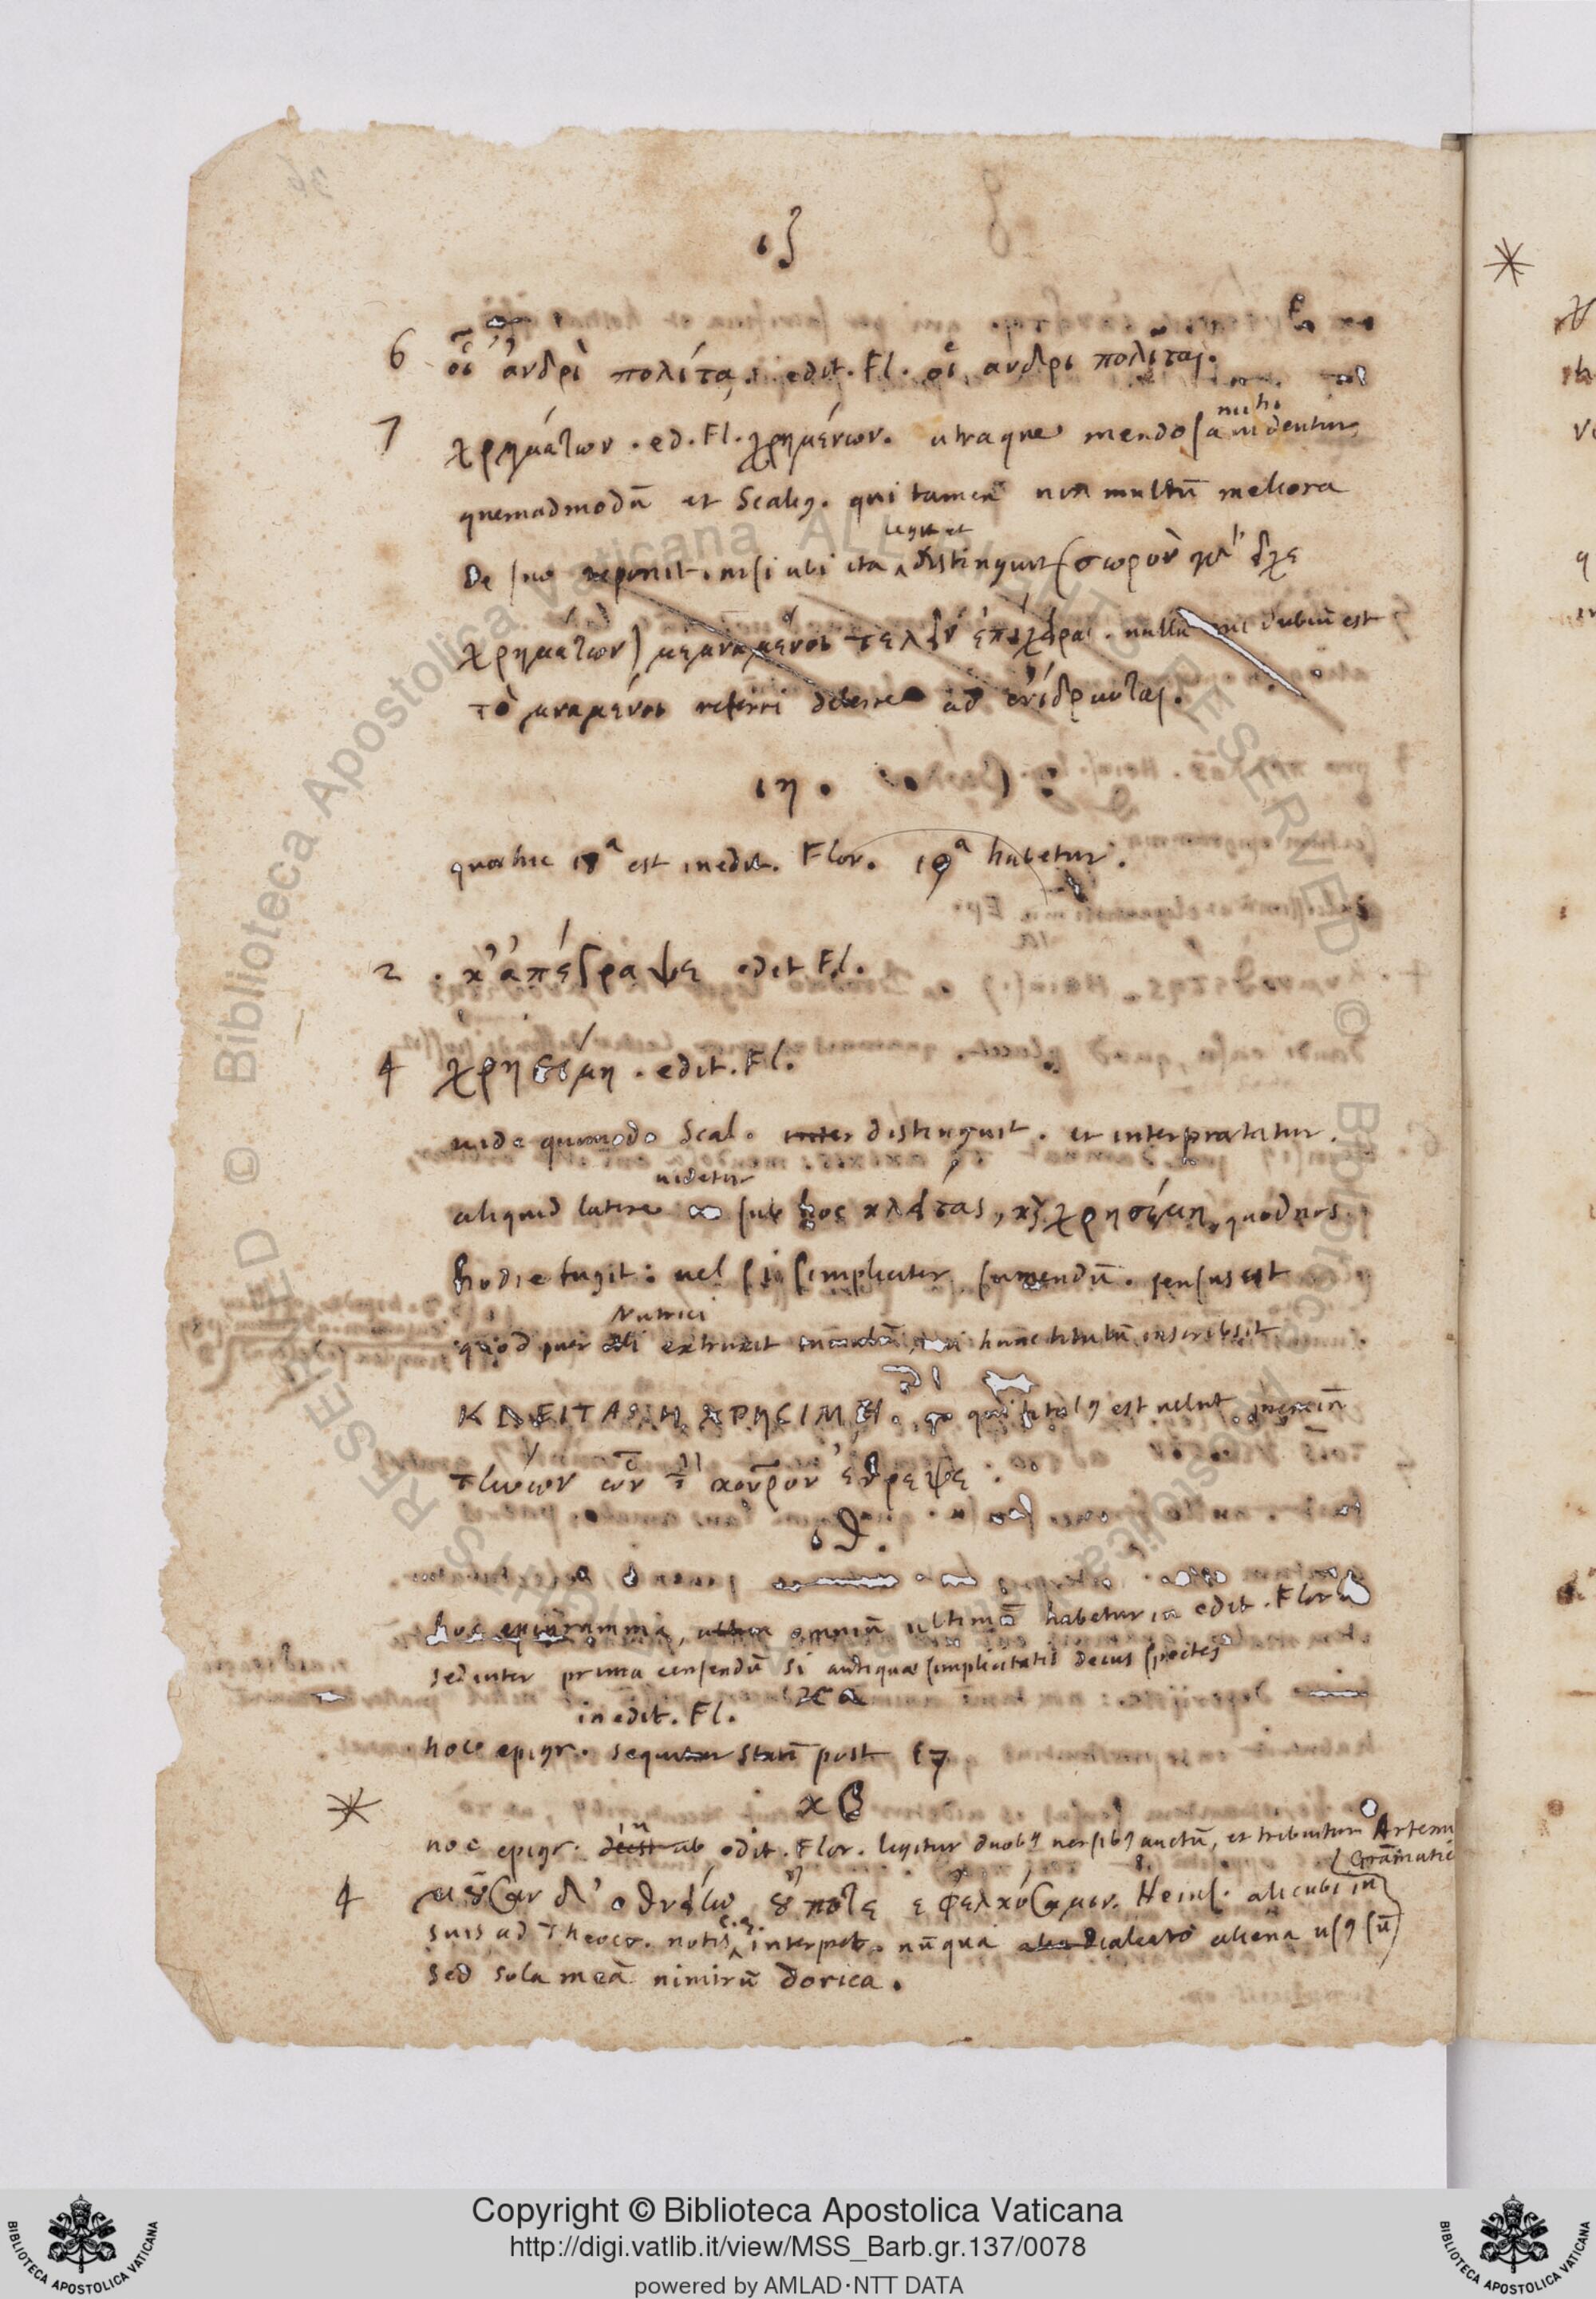 ιζ
6 οἷ ἀνδρὶ πολίτᾳ. edit. Fl. οἱ ανδρι πολῖται.
7 χρημάτων . ed. Fl. χρημένων. utraque mendosa mihi videntur,
quemadmodū et Scalig. qui tamen non multū meliora
de suo reponit. nisi ubi ita legit et distinguit (σωρὸν
χρημάτων) μεμναμένοι τελεῖν ἐπίχειρα. nullū dubiū est
τὸ μναμένοι referri debere ad ἐνίδρυνται.
ιη.
quae hic 18ª est in edit. Flor. 19ª habetur.
2 . κ' ἀπέγραψε edit Fl.
4 χρησίμη . edit. Fl.
vide quomodo Scal. distinguit. et interpretatur.
aliquid latere videtur sub hoc κλείτας, χρησίμη, quod nos
hodie fugit: vel si simpliciter sumendū. sensus est
quod puer Nutrici extruxit hunc titulū inscripsit
ΚΛΕΙΤΑΣ Η ΧΡΗΣΙΜΗ. est velut
κοῦρον ἔθρεψε.
ιθ.
hoc epigramma, omniū ultimū habetur in edit. Flor.
sed inter prima censendū si antiquae simplicitatis decus spectes
κα
in edit. Fl.
hoc epigr. sequitur statī post 17
* κβ
hoc epigr. in edit. Flor. legitur duobꝰ versibꝰ auctū, et tribuitur Artemi
Gramatic
4 μοῦσαν δ' ὀθνείαν οὔποτε ἐφελκύσαμην. Heins. alicubi in
suis ad Theocr. notis interpret. nūqua dialecto aliena usꝰ sū
sed sola meā nimirū dorica.
Copyright © Biblioteca Apostolica Vaticana
http://digi.vatlib.it/view/MSS_Barb.gr.137/0078
powered by AMLAD·NTT DATA